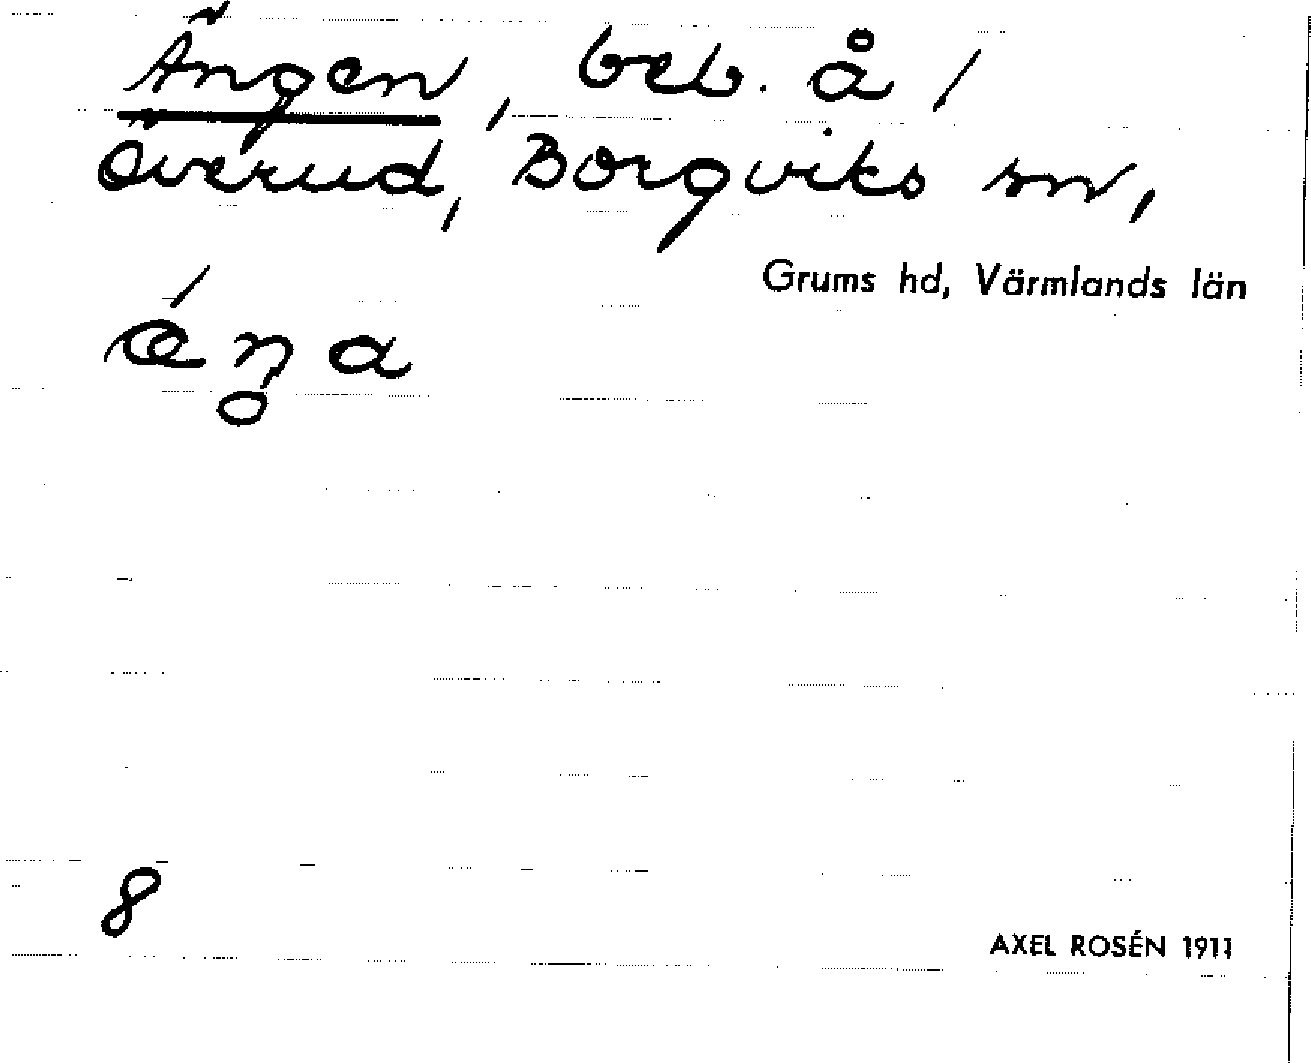 Ängen, beb. å /
Överud, Borgviks sn,
Grums hd, Värmlands län
ǽŋa
8
AXEL ROSÉN 1911